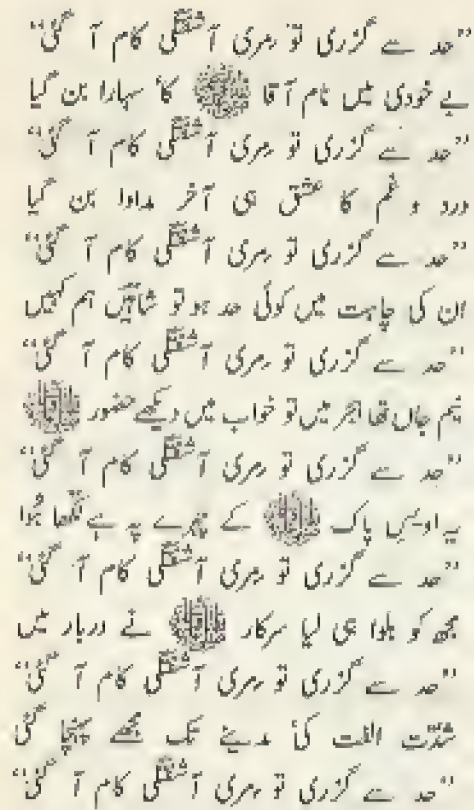 "حد سے گزری تو مری آشفتگی کام آ گئی"
بے خودی میں نام آقا ﷺ کا سہارا بن گیا
"حد سے گزری تو مری آشفتگی کام آ گئی"
درد و غم کا عشق ہی آخر مداوا بن گیا
"حد سے گزری تو مری آشفتگی کام آ گئی"
ان کی چاہت میں کوئی حد ہو تو شائیں ہم کہیں
"حد سے گزری تو مری آشفتگی کام آ گئی"
نیم جاں تھا ہجر میں تو خواب میں دیکھے حضور ﷺ
"حد سے گزری تو مری آشفتگی کام آ گئی"
یہ اویسِ پاک کے چہرے پہ ہے لکھا ہُوا
"حد سے گزری تو مری آشفتگی کام آ گئی"
مجھ کو بلوا ہی لیا سرکار ﷺ نے دربار میں
"حد سے گزری تو مری آشفتگی کام آ گئی"
شدّت الفت کی مدینے تک مجھے پہنچا گئی
"حد سے گزری تو مری آشفتگی کام آ گئی"